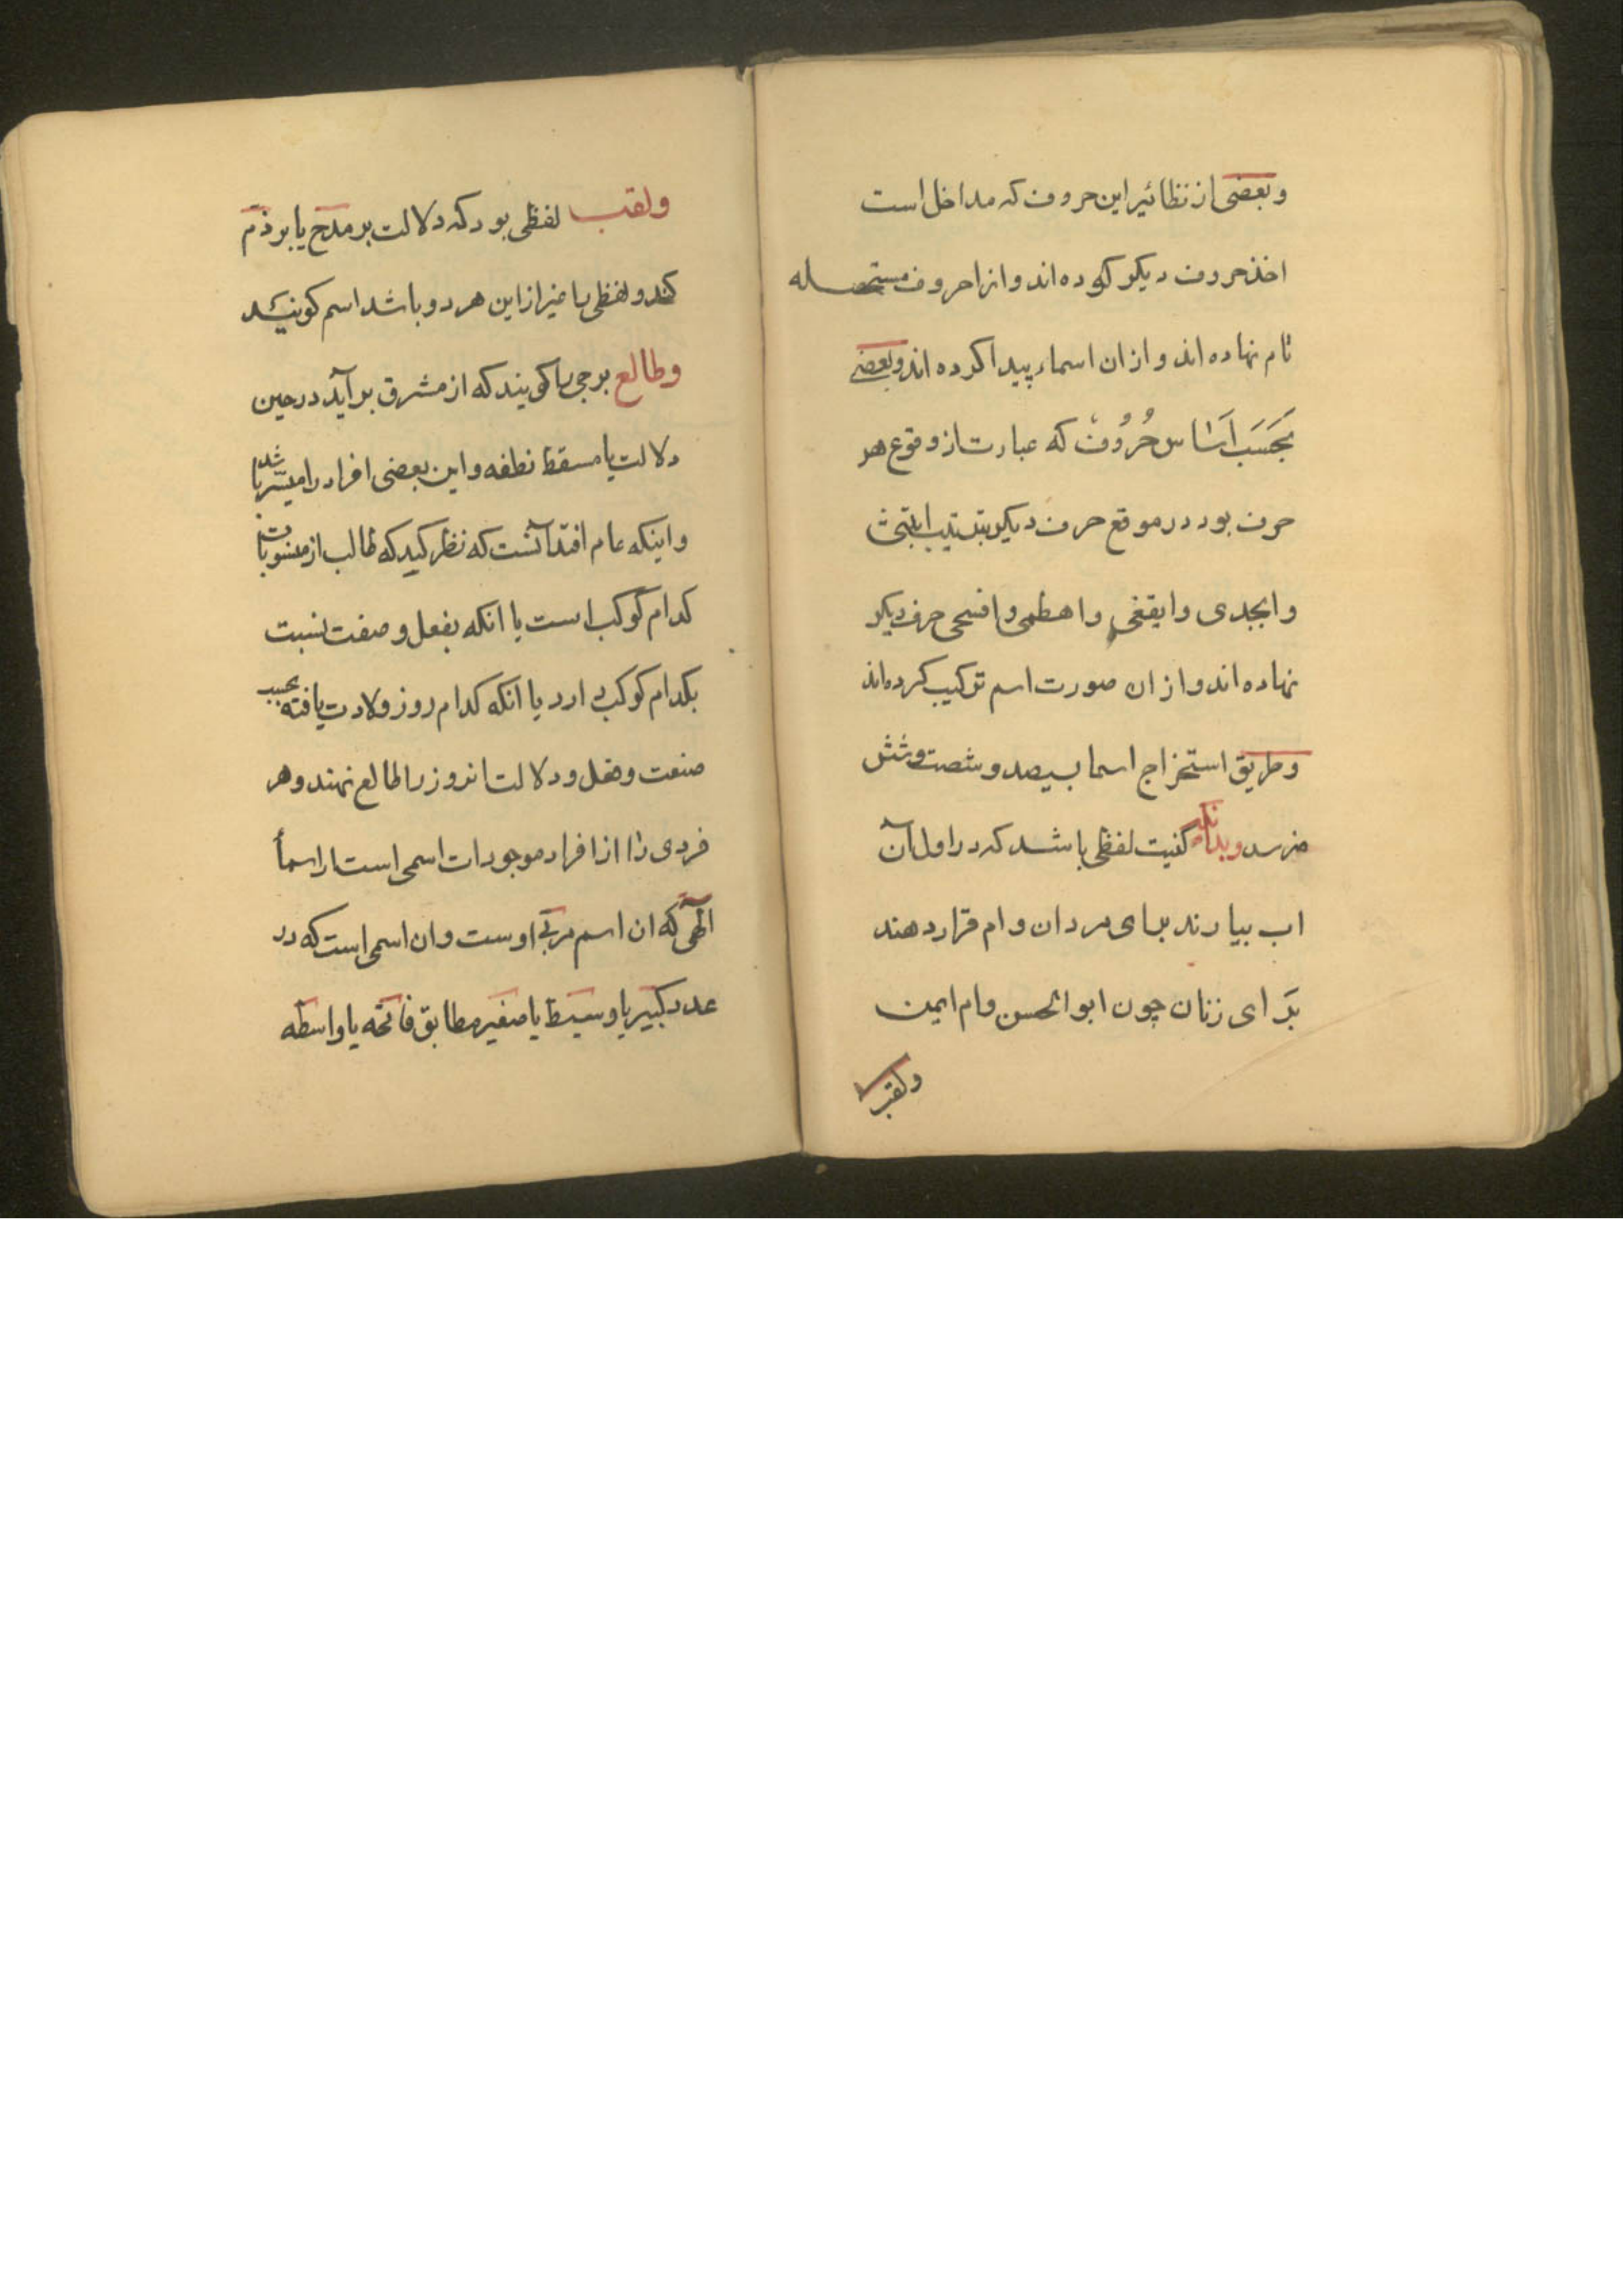 وبعضی از نظائیر این حروف که مداخل است
اخذ حروف دیکر کرده اند و انرا حروف مستحصله
نام نهاده اند و از ان اسماء پیدا کرده اند وبعضے
بحَسَب اَسَاس حُرُوُف که عبارت از وقوع هر
حرف بود در موقع حرف دیکر بترتیب ابتثی
وابجدی وایقغی واهطمی وافسجی حرف دیکر
نهاده اند و از ان صورت اسم ترکیب کرده اند
وطریق استخراج اسما بسیصد و شصت وشش
میرسد وبدانکه کنیت لفظی باشد که در اول آن
اب بیارند برای مردان وام قرار دهند
بَرای زنان چون ابوالحسن وام ایمن
ولقب
ولقب لفظی بود که دلالت بر مدح یا بر ذم
کند ولفظی را غیر از این هر دو باشد اسم کویند
وطالع برجی را کویند که از مشرق بر آید در حین
دلالت یا مسقط نطفه واین بعضی افراد را میسّر باشد
واینکه عام افتد آنست که نظر کید که طالب از منسوبات
کدام کوکب است یا انکه بفعل وصفت نسبت
بکدام کوکب دارد یا انکه کدام روز ولادت یافته بحسب
صنعت وفعل ودلالت انروز را طالع نهند وهر
فردی را از افراد موجودات اسمی است از اسمأ
الٓهی که ان اسم مربّے اوست وان اسمی است که در
عدد کبیر یا وسیط یا صغیر مطابق فاتحه یا واسطه